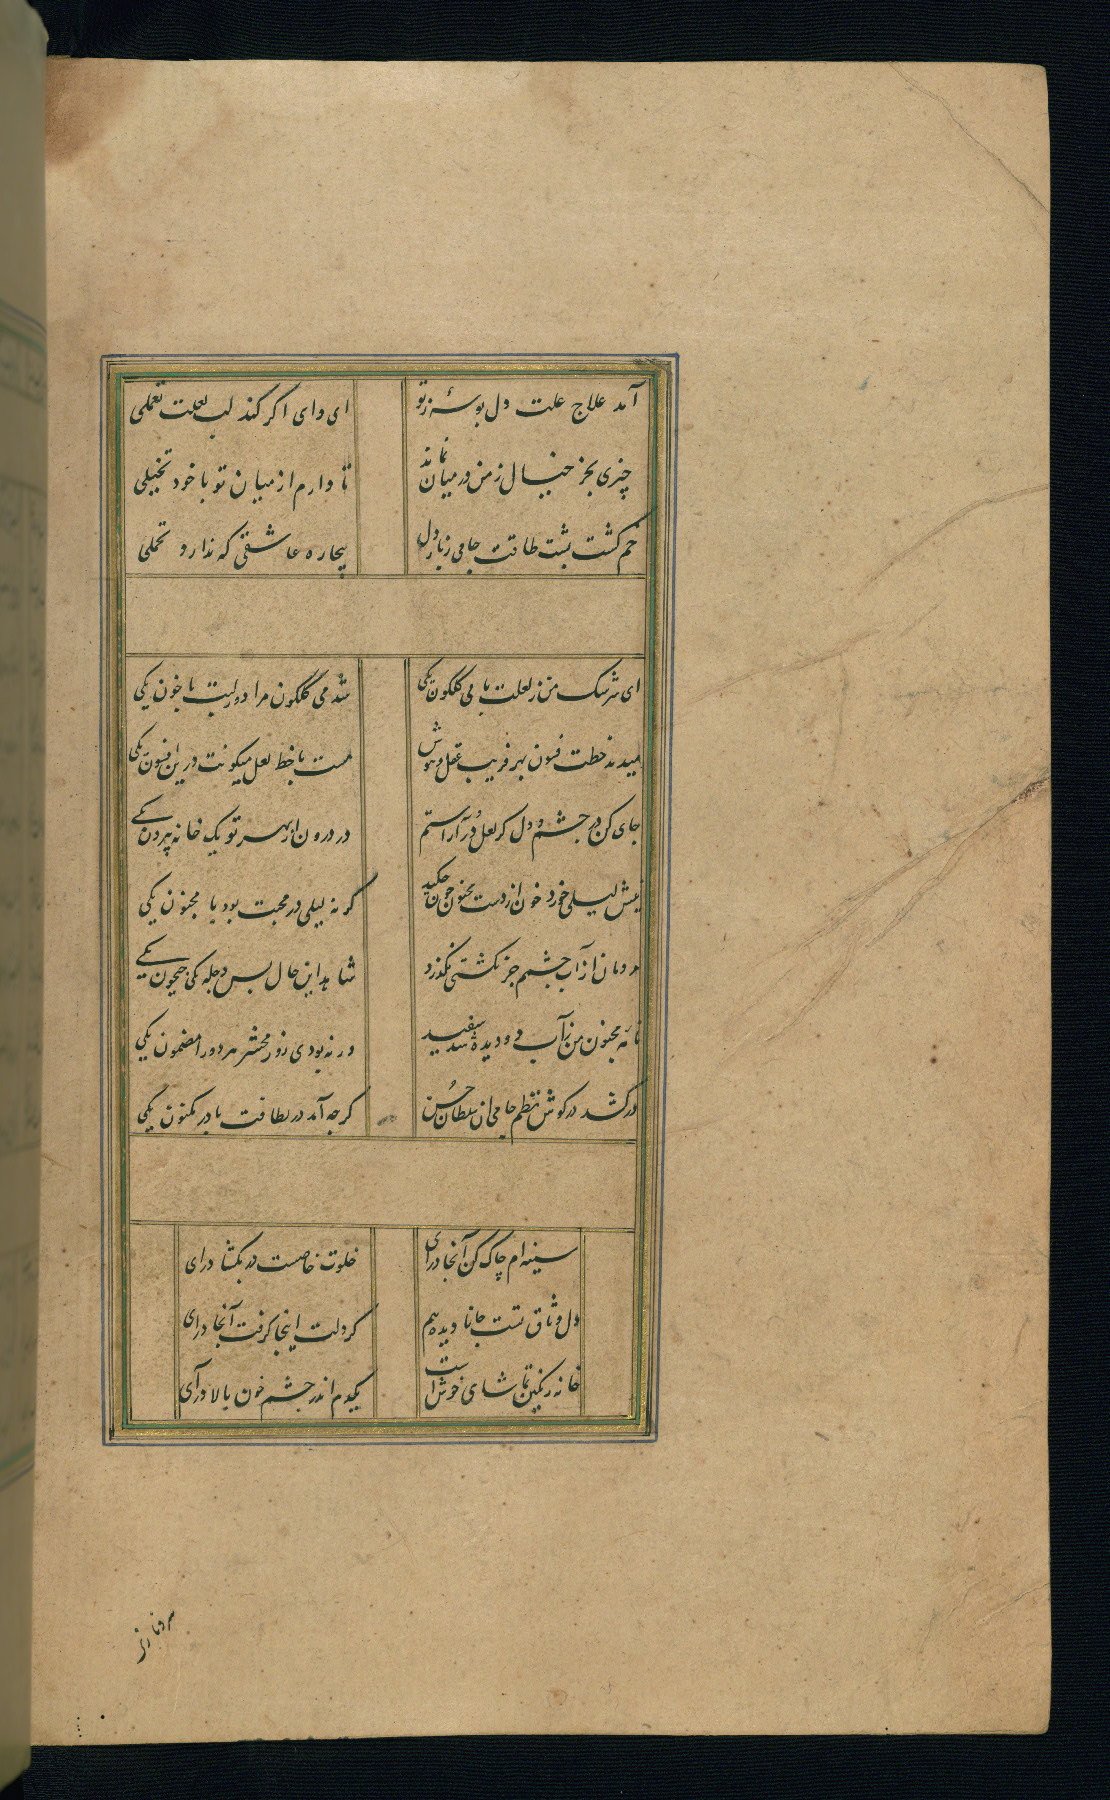 آمد علاج علت دل بوسهٔ ز تو
ای وای اگر کند لب لعلت تعللی
چیزی بجز خیال ز من در میان نماند
تا دارم از میان تو با خود تخیلی
خم گشت پشت طاقت جامی ز بار دل
بیچاره عاشقی که ندارد تحملی
ای سرشک من ز لعلت با می گلگون یکی
شد می گلگون مرا دور از لبت با خون یکی
میدمد خطت فسون بهر فریب عقل و هوش
هست با خط لعل میگونت درین افسون یکی
جای کن در چشم و دل کز لعل و در آراستم
در درون از بهر تو یک خانه بیرون یکی
نیش لیلی خورد خون از دست مجنون چون چکید
گر نه لیلی در محبت بود با مجنون یکی
مردمان از آب چشمم جز بکشتی نگذرد
شاهد این حال بس دجله یکی جیحون یکی
نامه مجنون من ز آب دو دیده شد سفید
ور نه بودی روز محشر هر دو را مضمون یکی
در کشد در گوش نظم جامی آن سلطان حسن
گرچه آمد در لطافت با در مکنون یکی
سینه ام چاک کن آنجا درآی
خلوت خاصست در بگشا درآی
دل وثاق تست جانا دیده هم
گر دلت اینجا گرفت آنجا درآی
خانه رنگین تماشای خوش است
یکدم اندر چشم خون پالا درآی